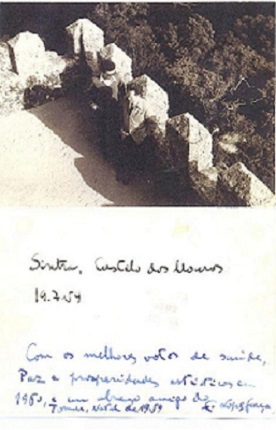 Sintra, Castelo dos Mouros
19.7.59
Com os melhores votos de saúde,
Paz e prosperidades artísticas em
1960, e um abraço amigo do
Tomar, Natal de 1959